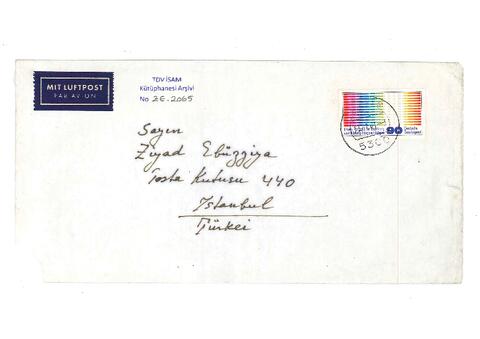 MIT LUFTPOST
PAR AVION
TDV İSAM
Kütüphanesi Arşivi
No 2E.2065
90
5300
Sayın
Ziyad Ebüzziya
Posta Kutusu 440
Istanbul
Türkei